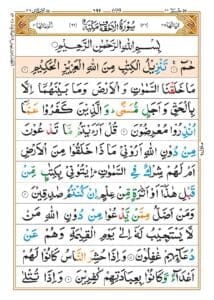 سُوْرَةُ الْاَحْقَافِ مَكِّيَّةٌ
بِسْمِ اللّٰهِ الرَّحْمٰنِ الرَّحِيْمِ
حٰمٓ ۚ تَنْزِيْلُ الْكِتٰبِ مِنَ اللّٰهِ الْعَزِيْزِ الْحَكِيْمِ
مَا خَلَقْنَا السَّمٰوٰتِ وَالْاَرْضَ وَمَا بَيْنَهُمَاۤ اِلَّا
بِالْحَقِّ وَاَجَلٍ مُّسَمًّى ؕ وَالَّذِيْنَ كَفَرُوْا عَمَّاۤ
اُنْذِرُوْا مُعْرِضُوْنَ قُلْ اَرَءَيْتُمْ مَّا تَدْعُوْنَ
مِنْ دُوْنِ اللّٰهِ اَرُوْنِيْ مَاذَا خَلَقُوْا مِنَ الْاَرْضِ
اَمْ لَهُمْ شِرْكٌ فِي السَّمٰوٰتِ ؕ اِيْتُوْنِيْ بِكِتٰبٍ مِّنْ
قَبْلِ هٰذَاۤ اَوْ اَثٰرَةٍ مِّنْ عِلْمٍ اِنْ كُنْتُمْ صٰدِقِيْنَ
وَمَنْ اَضَلُّ مِمَّنْ يَّدْعُوْا مِنْ دُوْنِ اللّٰهِ مَنْ
لَّا يَسْتَجِيْبُ لَهٗۤ اِلٰى يَوْمِ الْقِيٰمَةِ وَهُمْ عَنْ
دُعَآئِهِمْ غٰفِلُوْنَ وَاِذَا حُشِرَ النَّاسُ كَانُوْا لَهُمْ
اَعْدَآءً وَّكَانُوْا بِعِبَادَتِهِمْ كٰفِرِيْنَ وَاِذَا تُتْلٰى